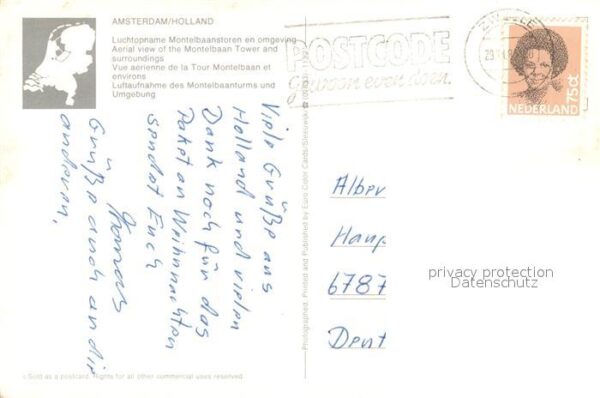 AMSTERDAM/HOLLAND
Luchtopname Montelbaanstoren en omgeving
Aerial view of the Montelbaan Tower and
surroundings
Vue aérienne de la Tour Montelbaan et
environs
Luftaufnahme des Montelbaanturms und
Umgebung
POSTCODE
gewoon even doen.
ZWOLLE
NEDERLAND 75ct
Viele Grüße aus
Holland und vielen
Dank noch für das
Paket an Weihnachten
sendet Euch
Thomas
Grüße auch an die
anderen.
Photographed, Printed and Published by Euro Color Cards/Sleeuwijk
Alber
Haup
6787
Deut
privacy protection
Datenschutz
Sold as a postcard. Rights for all other commercial uses reserved.